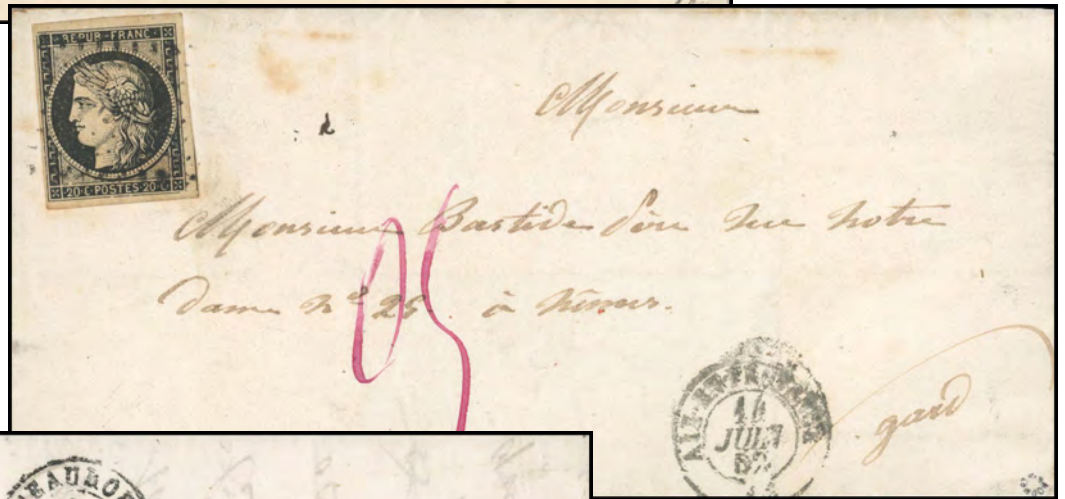 REPUB·FRANC
20·C·POSTES·20·C
Monsieur
Monsieur Bastide père rue notre
dame n° 25 à Nimes.
25
gard
AIX-EN-PROVENCE
JUIN
52
BEAUBO